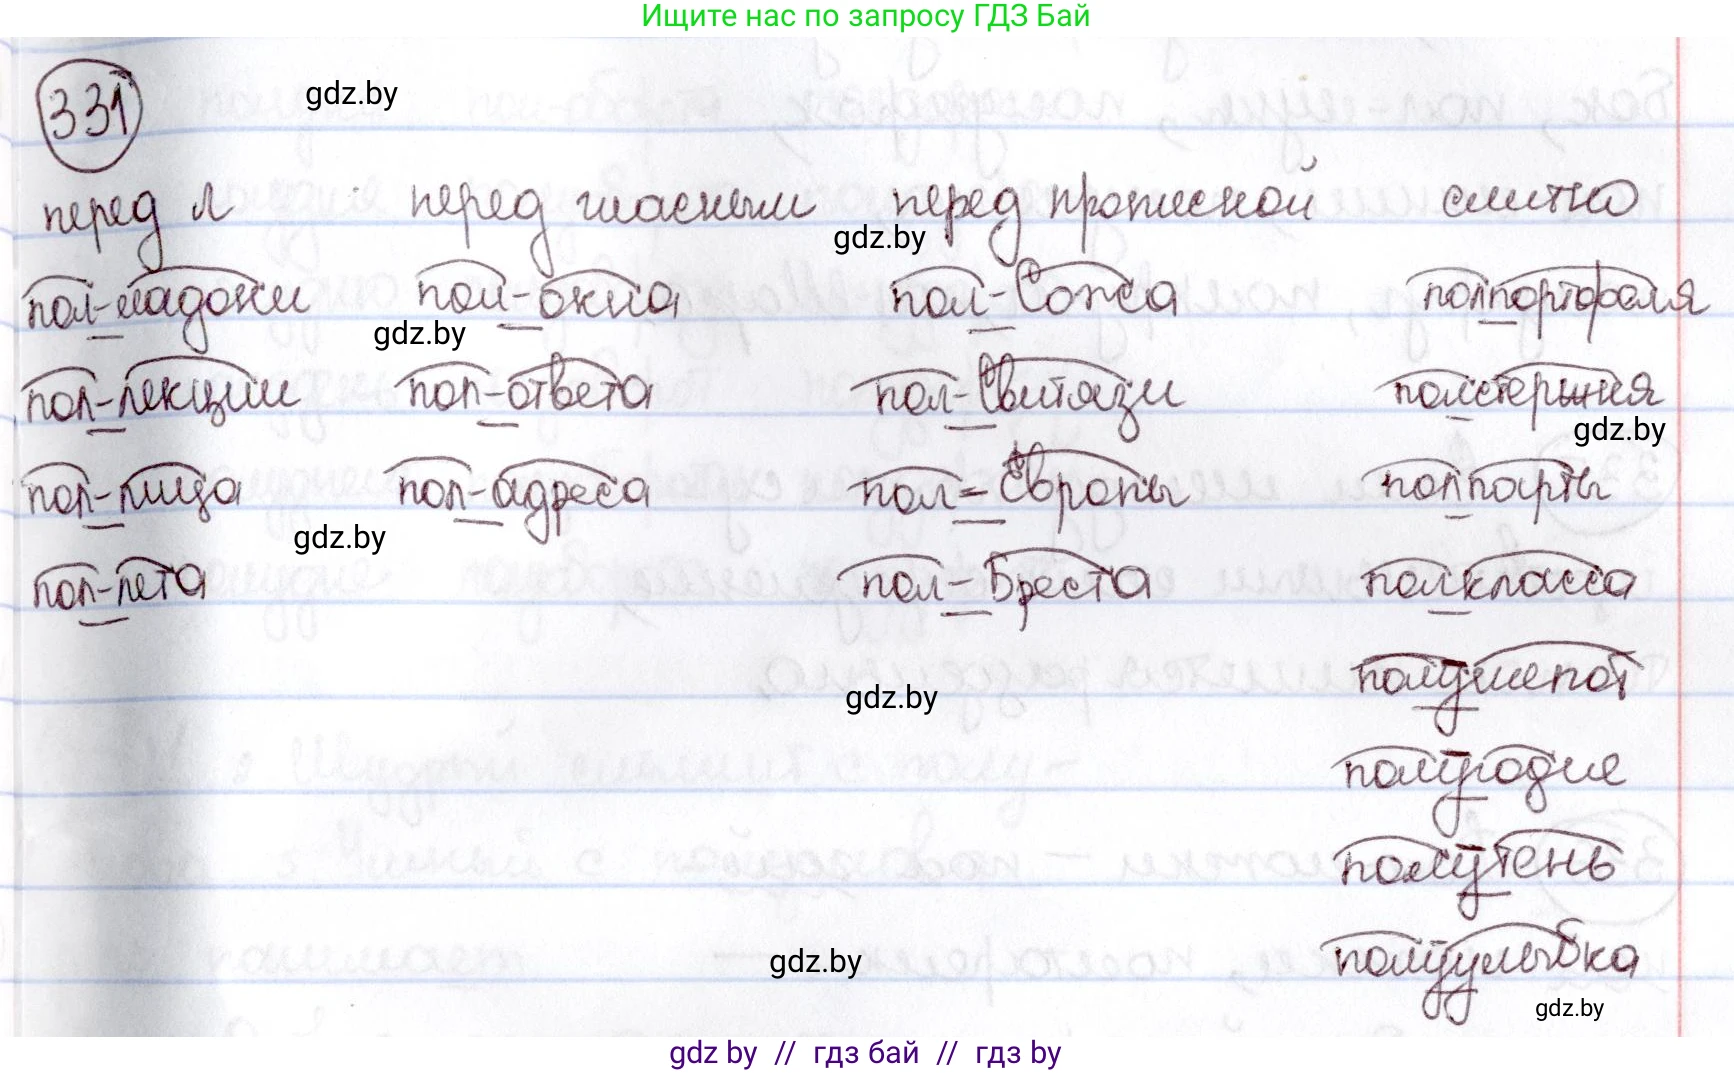 Ищите нас по запросу ГДЗ Бай
331 gdz.by
перед л перед гласными перед прописной слитно
gdz.by
пол-ладони пол-окна пол-Сожа полпортфеля
gdz.by
пол-лекции пол-ответа пол-Свитязи полстержня
gdz.by
пол-лица пол-адреса пол-Европы полпарты
gdz.by
пол-лета пол-Бреста полкласса
полушепот
gdz.by
полугодие
полутень
полуулыбка
gdz.by
gdz.by
gdz by // гдз бай // гдз by